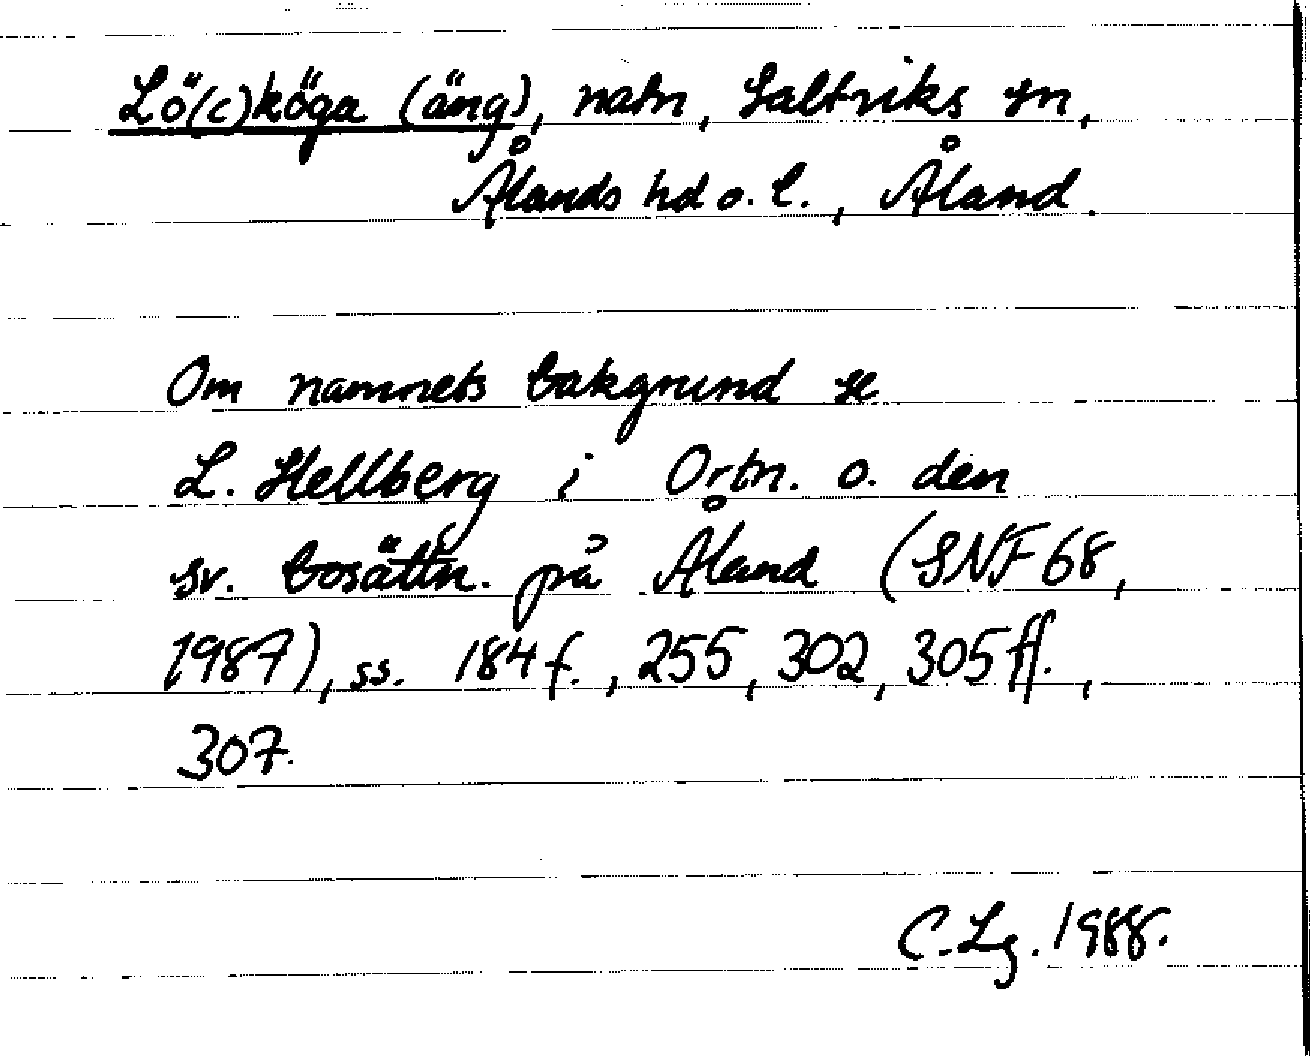 Lö(c)köga (äng), natn, Saltviks sn,
Ålands hd o. l., Åland.
Om namnets bakgrund se
L. Hellberg i Ortn. o. den
sv. bosättn. på Åland (SNF 68,
1987), ss. 184 f., 255, 302, 305 ff.,
307.
C. Lg. 1988.